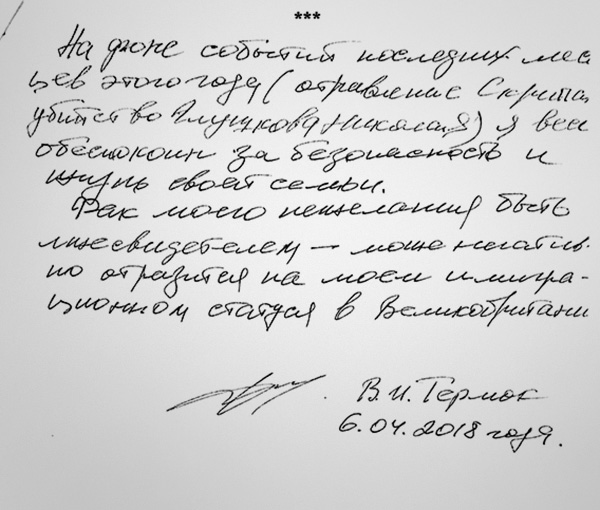 ***
На фоне событий последних меся
цев этого года (отравление Скрипа
убийство Глушкова Николая) я весь
обеспокоин за безопасность и
жизнь своей семьи.
Фак моего нежелания быть
лжесвидетелем — може негатив-
но отразится на моем имигра-
ционном статусе в Великобритани
В.И. Гермок
6.04.2018 года.